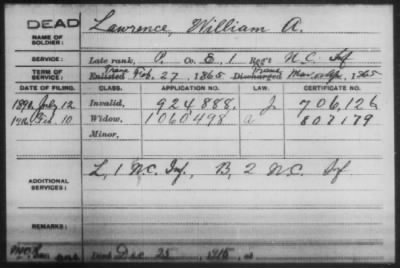 DEAD
NAME OF SOLDIER:
Lawrence, William A.
SERVICE:
Late rank, P. Co. E, 1 Reg't N.C. Inf
TERM OF SERVICE:
Trans
Enlisted Feb. 27, 1865
Trans
Discharged 1865
DATE OF FILING. CLASS. APPLICATION NO. LAW. CERTIFICATE NO.
1890 July 12 Invalid, 924,888, J 706,126
10 Widow, 1060498 a 807179
Minor,
ADDITIONAL SERVICES:
L, 1 N.C. Inf., B, 2 N.C. Inf
REMARKS:
Died Dec 25, 1915, at